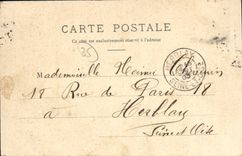 CARTE POSTALE
Ce côté est exclusivement réservé à l'adresse
35
HERBLAY
Mademoiselle
18 Rue de Paris 18
à
Herblay
Seine et Oise